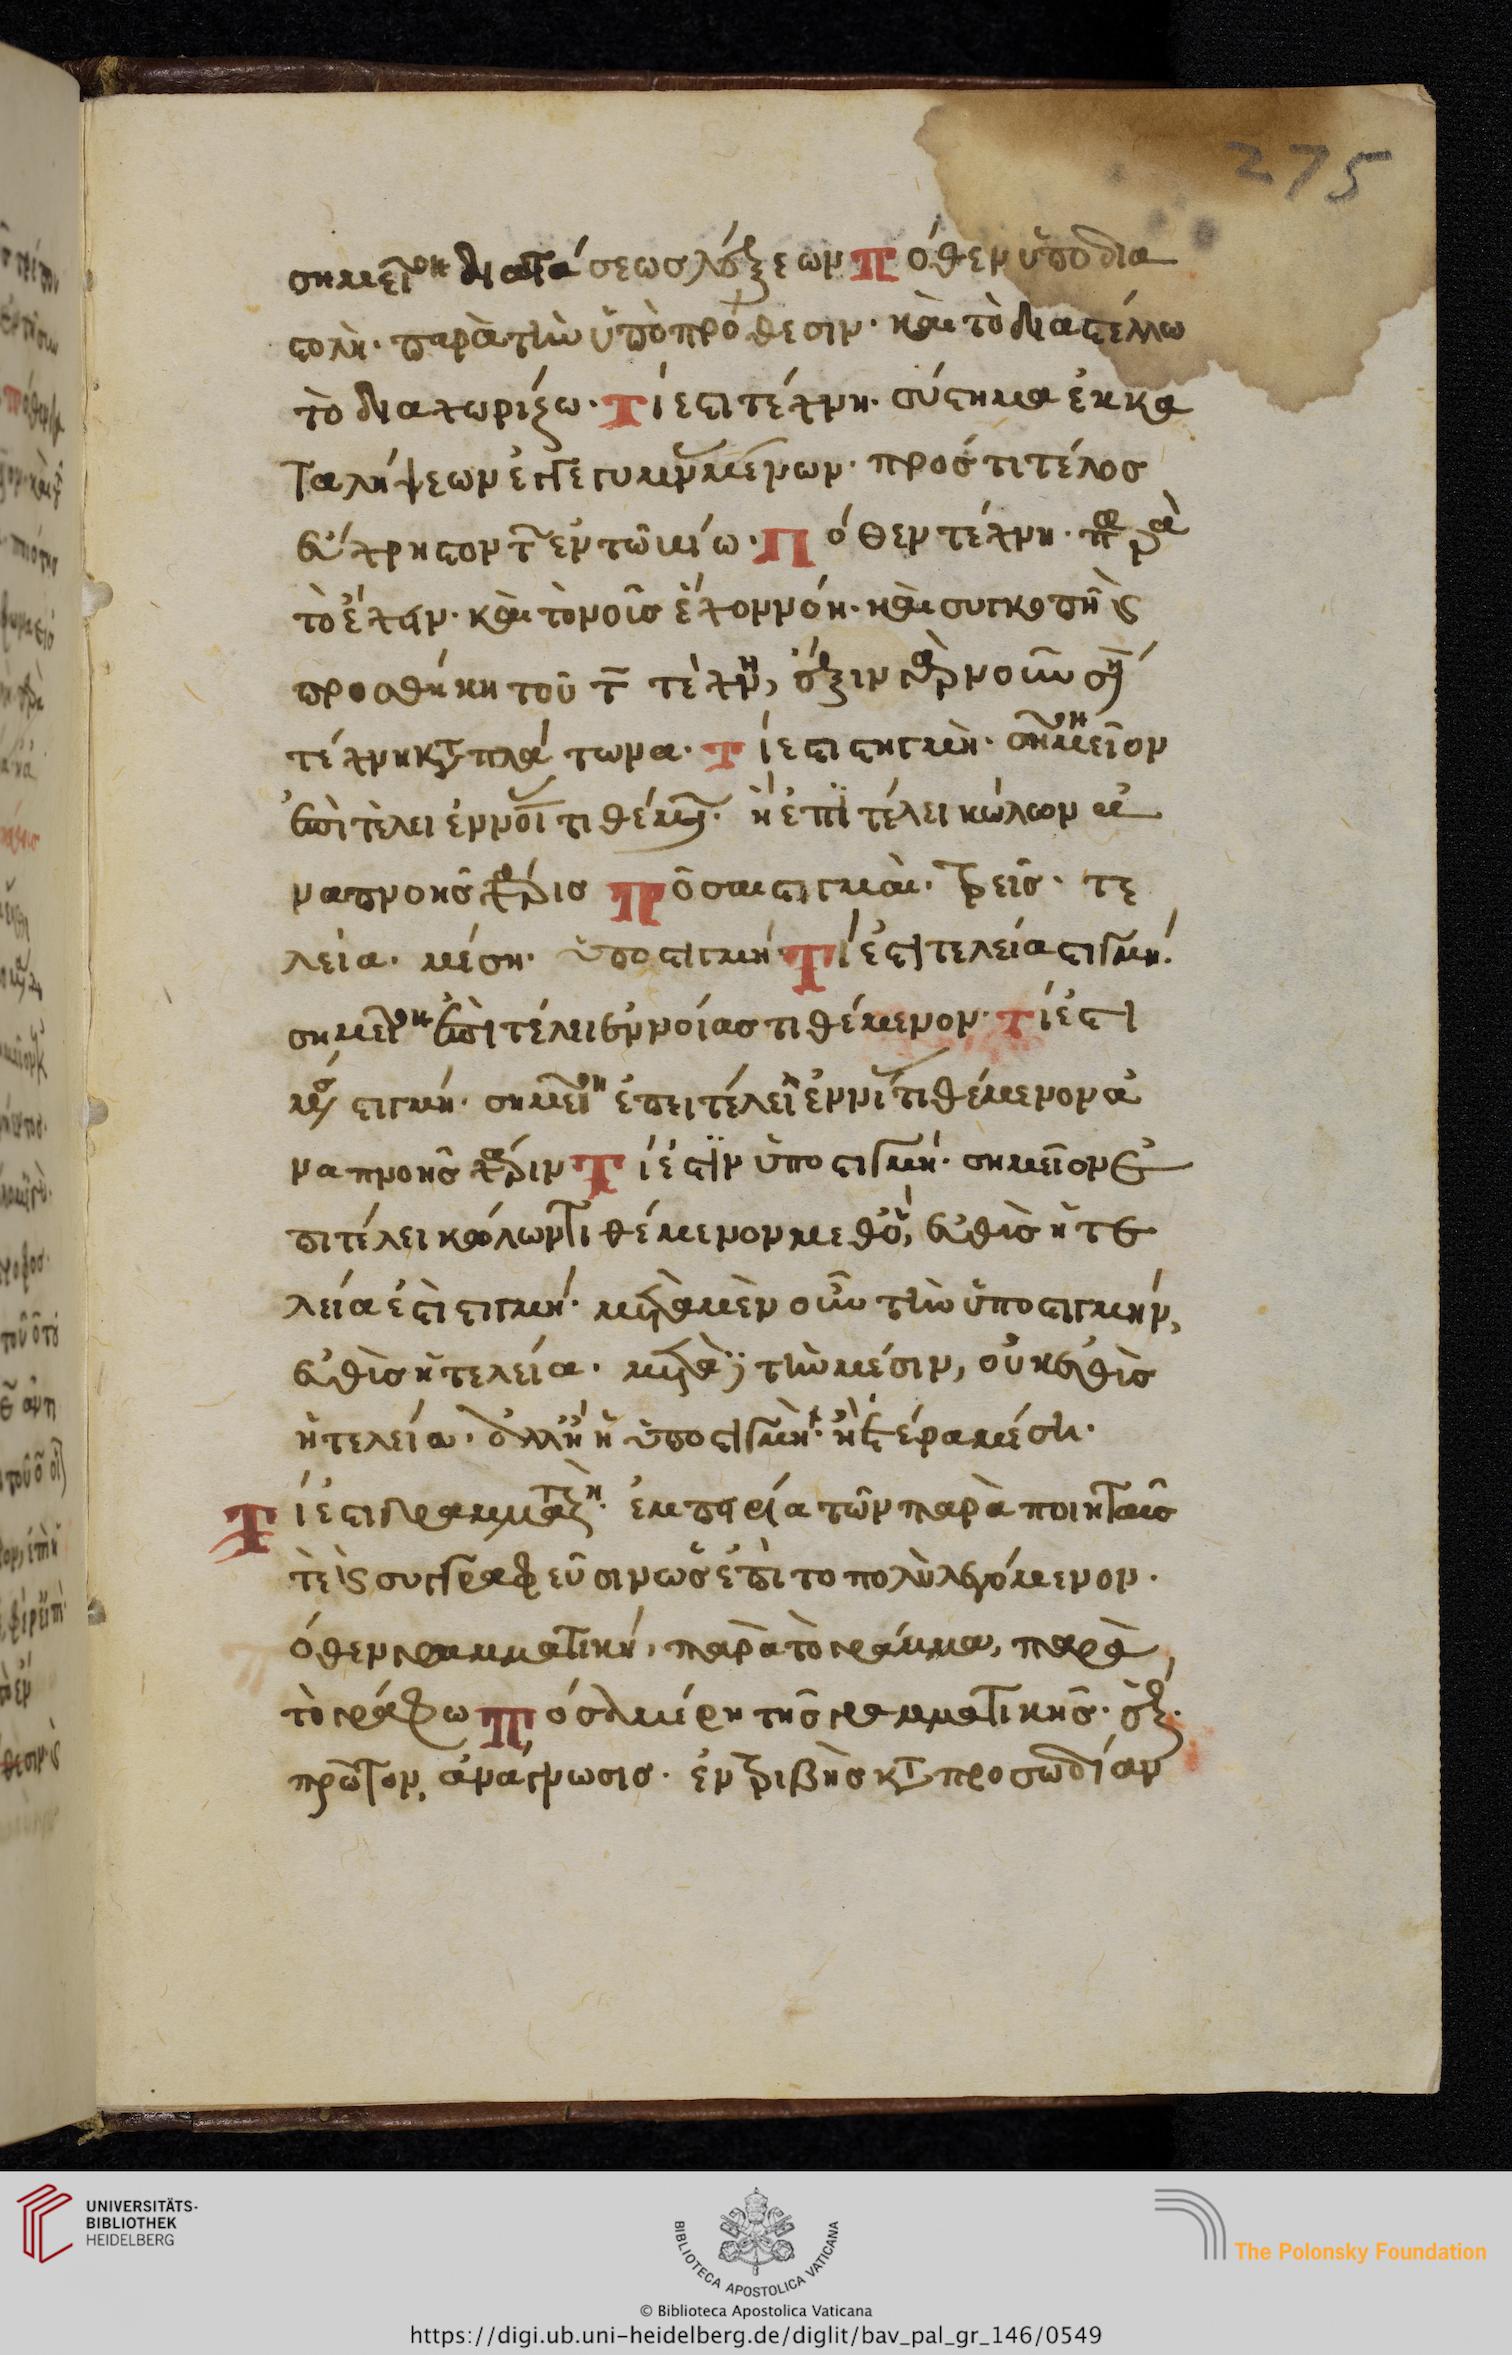 σημεῖον διατάσεως λέξεων Πόθεν ὑποδια
στολὴ· παρὰ τὴν ὑπὸ πρόθεσιν· καὶ τὸ διαστέλλω
τὸ διαχωρίζω· Τί ἐστι τέχνη· σύστημα ἐκ κα
ταλήψεων πρός τι τέλος
εὔχρηστον τῶν ἐν τῷ βίω· Πόθεν τέχνη· παρὰ
τὸ ἔχειν· καὶ τὸ νοῦς καὶ συγκοπῆ καὶ
προσθήκη τοῦ τ τέχνη, ἕξιν γὰρ νοῦ σημαίνει
τέχνη κατὰ πλάτωνα· Τί ἐστι στιγμὴ· σημεῖον
ἐπὶ τέλει ἐννοίας τιθέμενον· ἢ ἐπὶ τέλει κώλων ἀ
ναπνοῆς χάρις Πόσαι στιγμαὶ· τρεῖς· τε
λεία· μέση· ὑποστιγμή· Τί ἐστι τελεία στιγμή·
σημεῖον ἐπὶ τέλει ἐννοίας τιθέμενον· Τί ἐστι
μέση στιγμή· σημεῖον ἐπει τέλει τιθέμενον ἀ
ναπνοῆς χάριν Τί ἐστὶν ὑποστιγμή· σημεῖον ἐ
πι τέλει κώλων τιθέμενον μεθ' οὗ, εὐθὺς ἡ τε
λεία ἐστὶ στιγμή· μετὰ μὲν οὖν τὴν ὑποστιγμήν,
εὐθὺς ἡ τελεία· μετὰ δὲ τὴν μέσιν, οὐκ εὐθὺς
ἡ τελεία· ἀλλ' ἢ ἡ ὑποστιγμὴ· ἢ ἑτέρα μέση·
Τί ἐστι γραμματική· ἐμπειρία τῶν παρὰ ποιηταῖς
τὲ καὶ συγγραφεῦσιν ὡς ἐπὶ το πολὺ λεγόμενον·
όθεν γραμματική, παρὰ τὸ γράμμα, παρὰ
τὸ γράφω Πόσα μέρη τῆς γραμματικῆς· ἕξ·
πρῶτον, ἀνάγνωσις· ἐντριβὴς κατὰ προσωδίαν
275
UNIVERSITÄTS-
BIBLIOTHEK
HEIDELBERG
BIBLIOTECA APOSTOLICA VATICANA
The Polonsky Foundation
© Biblioteca Apostolica Vaticana
https://digi.ub.uni-heidelberg.de/diglit/bav_pal_gr_146/0549